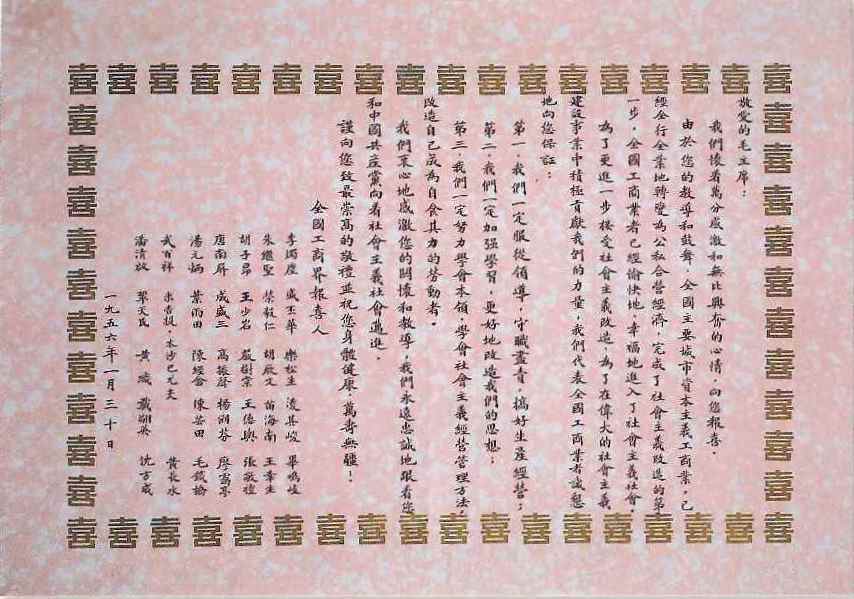 敬愛的毛主席：
我們懷着萬分感激和無比興奮的心情，向您報喜。
由於您的教導和鼓舞，全國主要城市資本主義工商業，已
經全行全業地轉變為公私合營經濟，完成了社會主義改造的第
一步，全國工商業者已經愉快地、幸福地進入了社會主義社會。
為了更進一步接受社會主義改造，為了在偉大的社會主義
建設事業中積極貢獻我們的力量，我們代表全國工商業者誠懇
地向您保証：
第一，我們一定服從領導，守職盡責，搞好生產經營；
第二，我們一定加强學習，更好地改造我們的思想；
第三，我們一定努力學會本領，學會社會主義經營管理方法，
改造自己成為自食其力的勞動者。
我們衷心地感激您的關懷和教導，我們永遠忠誠地跟着您
和中國共產黨向着社會主義社會邁進。
謹向您致最崇高的敬禮並祝您身體健康，萬壽無疆！
全國工商界報喜人
李燭塵 盛丕華 樂松生 凌其峻 畢鳴岐
朱繼聖 榮毅仁 胡厥文 苗海南 王韋生
胡子昂 王少岩 嚴樹棠 王德輿 張敬禮
唐南屏 咸咸三 高振聲 楊朔芬 廖富亭
湯元炳 葉雨田 陳經畬 陳芸田 毛鐵橋
武百祥 黃長水
潘清放 鞏天民 黃 戴翊英 沈方成
一九五六年一月三十日
喜 喜 喜 喜 喜 喜 喜 喜 喜 喜 喜 喜 喜 喜 喜 喜 喜 喜